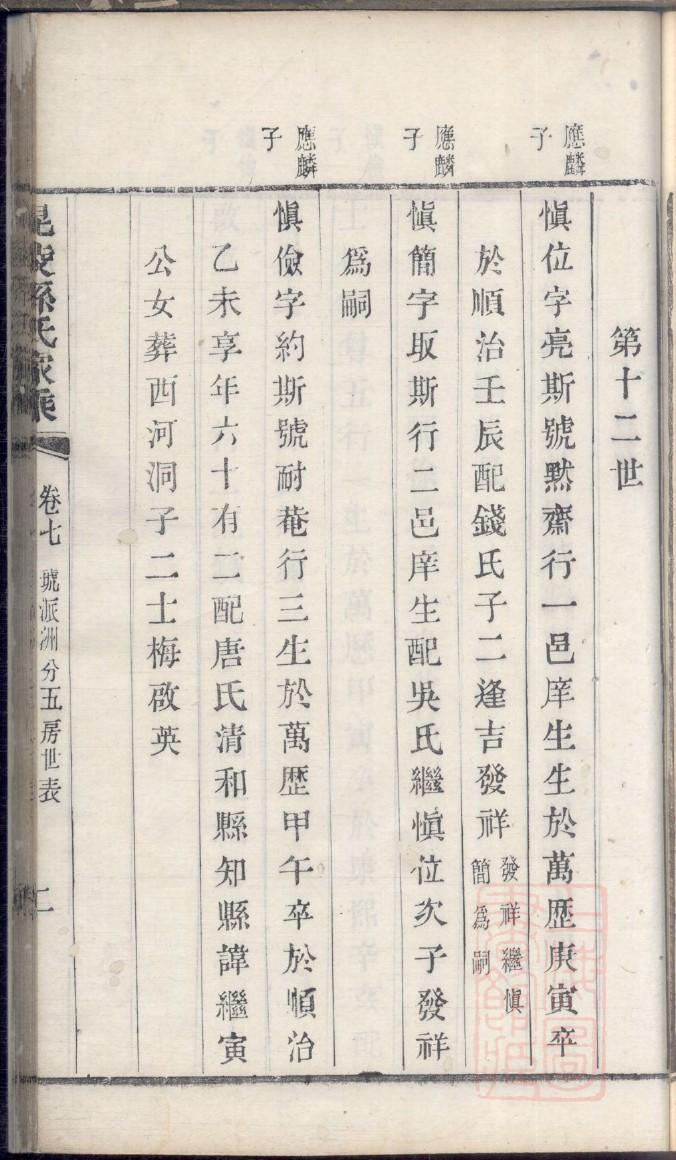 第十二世
應麟
子
愼位字亮斯號黙齋行一邑庠生生於萬歴庚寅卒
於順治壬辰配錢氏子二逢吉發祥
發祥繼愼
簡爲嗣
應麟
子
愼簡字取斯行二邑庠生配吳氏繼愼位次子發祥
爲嗣
應麟
子
愼儉字約斯號耐菴行三生於萬歴甲午卒於順治
乙未享年六十有二配唐氏清和縣知縣諱繼寅
公女葬西河洞子二士梅啟英
毘陵孫氏家乘
卷七
號派洲分五房世表
二